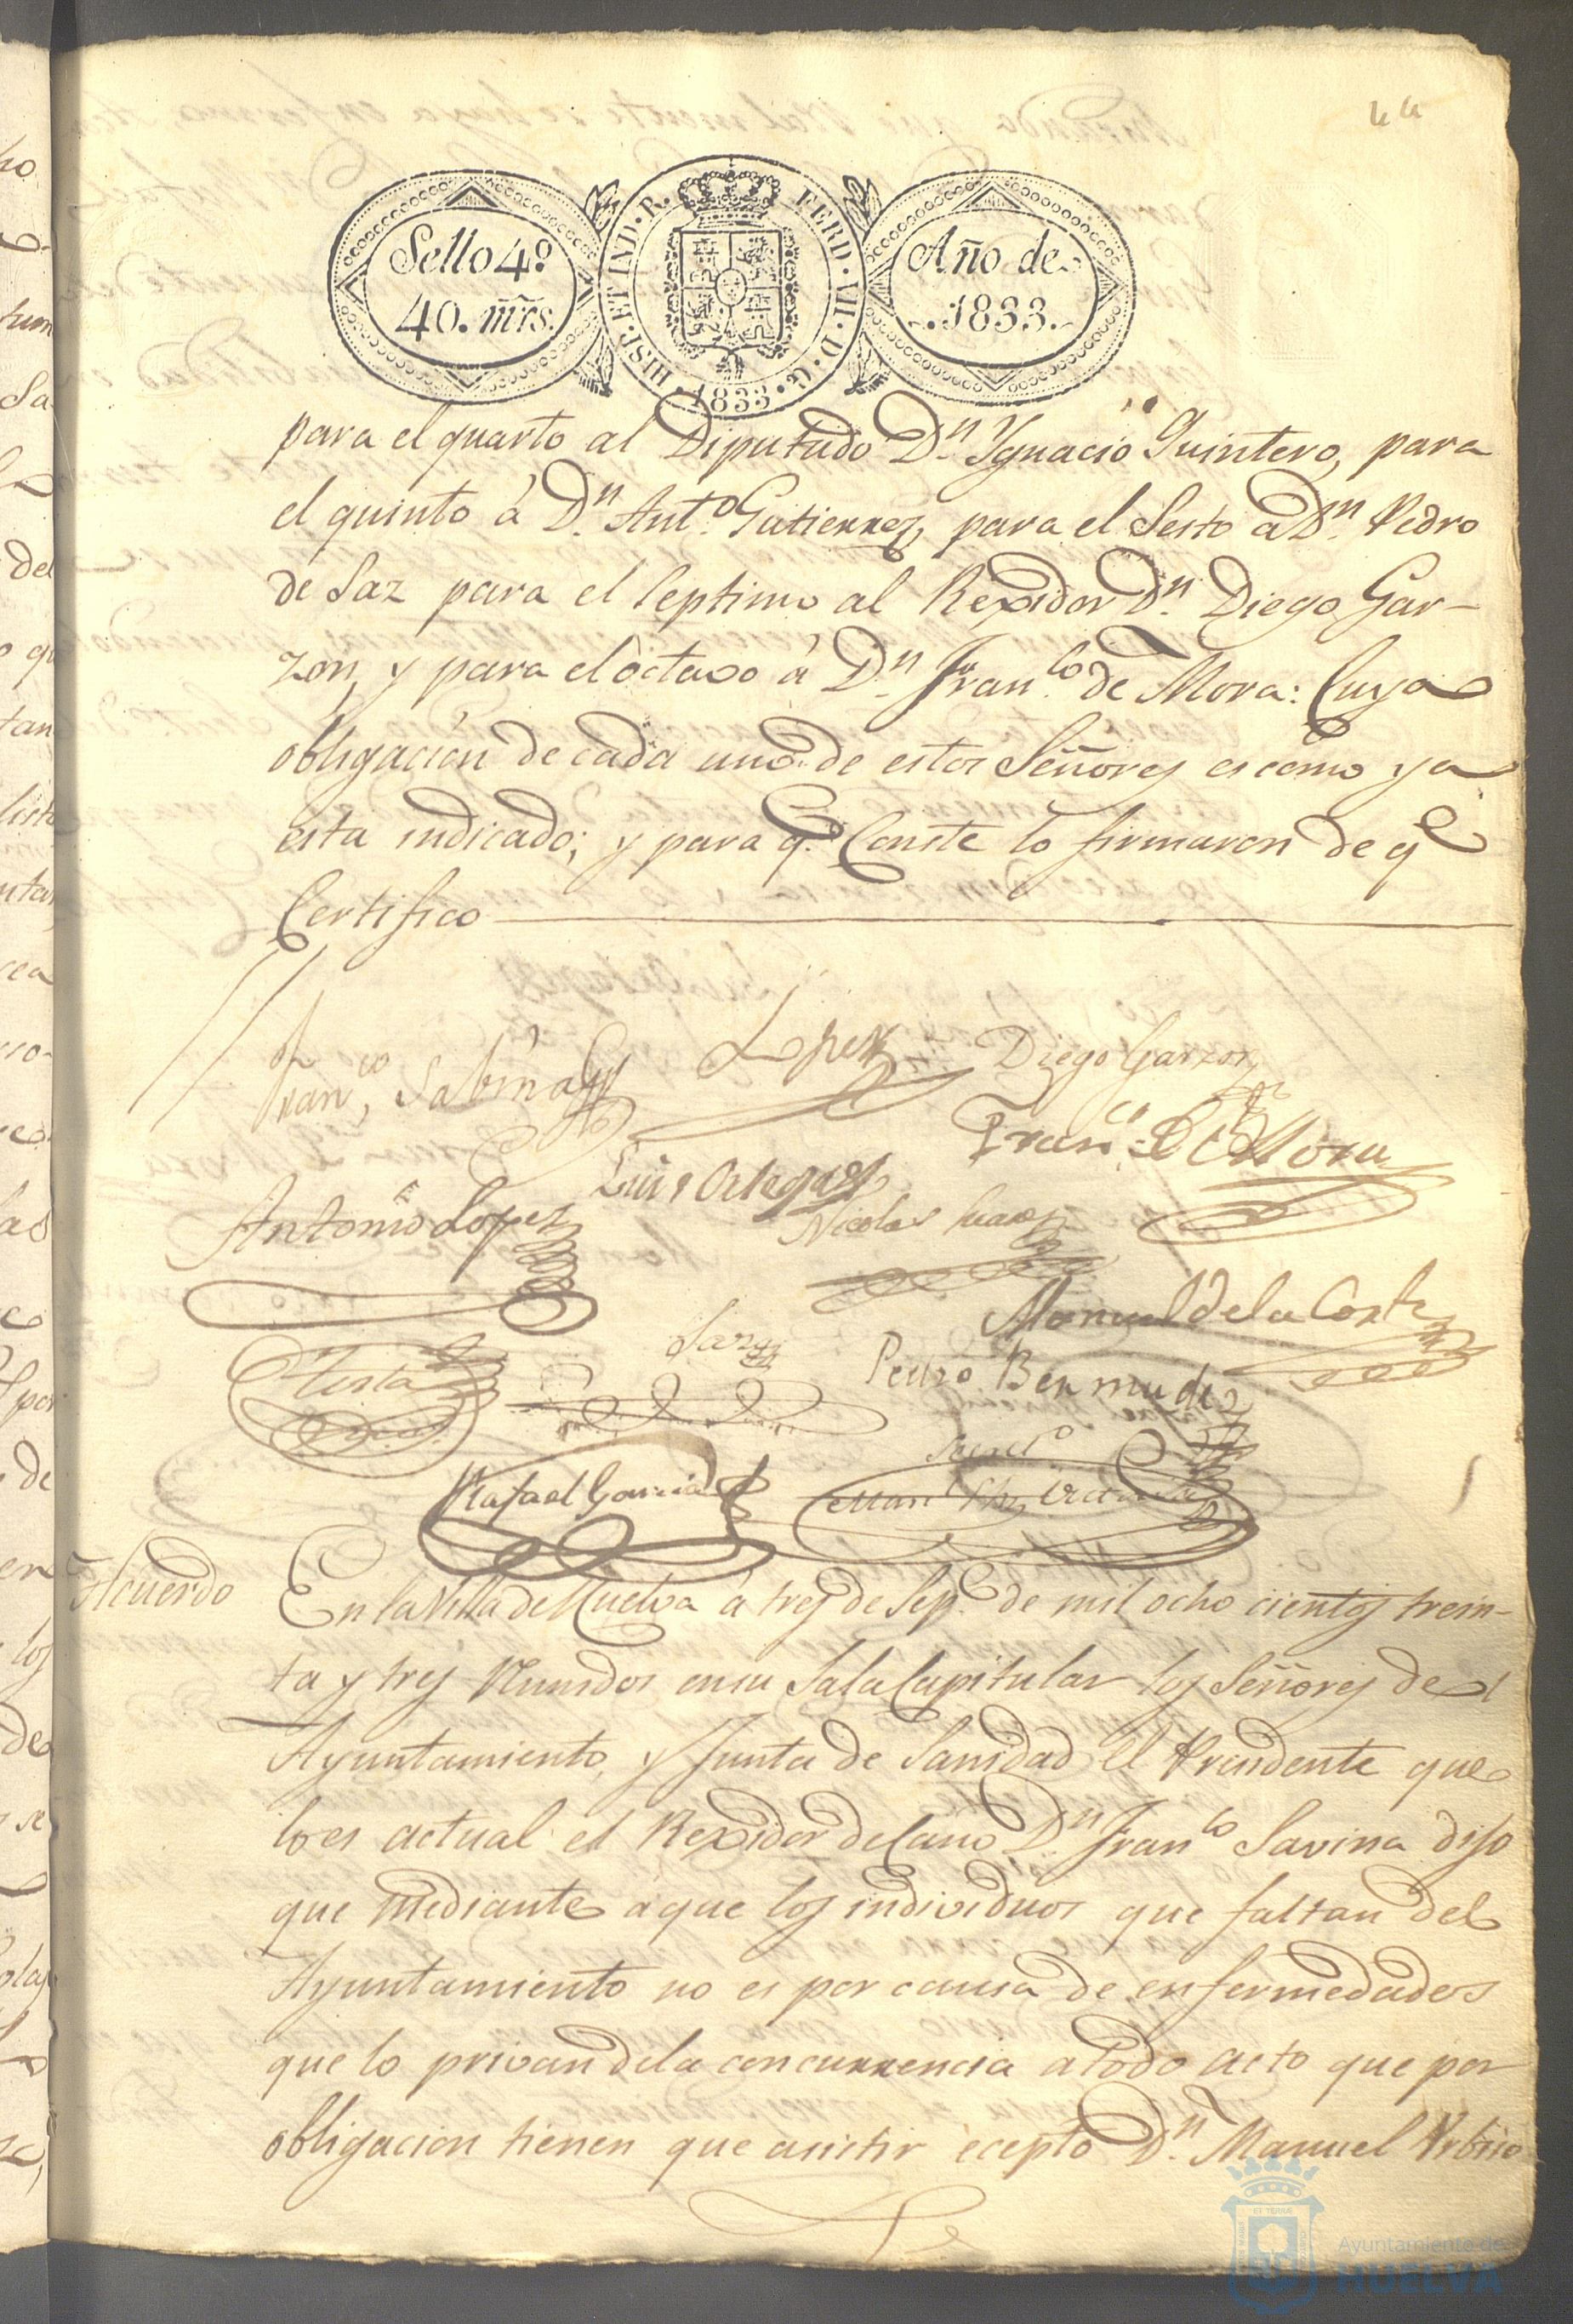 44
Sello 4º
40. mr̃s.
HISP. ET IND. R. FERD. VII. D. G. 1833.
Año de
1833.
para el quarto al Diputado Dn. Ygnacio Quintero, para
el quinto á Dn. Anto. Gutierrez, para el Sesto a Dn. Pedro
de Saz para el septimo al Rexidor Dn. Diego Gar-
zon, y para el octavo á Dn. Franco. de Mora: Cuya
obligación de cada uno de estos Señores es como ya
esta indicado; y para qe. Conste lo firmaron de qe
Certifico
Franco, Sabina
Lopez
Diego Garzon
Franco. de Mora
Luis Ortega
Antonio Lopez
Nicolas
Manuel de la Corte
Testa
Saz
Pedro Bermudez
Rafael Garcia
Secreto
Manl
Acuerdo
En la Villa de Huelva á tres de Sepe. de mil ocho cientos trein-
ta y tres Reunidos en su Sala Capitular los Señores de el
Ayuntamiento, y Junta de Sanidad el Presidente que
lo es actual el Rexidor Decano Dn. Franco Savina dijo
que mediante a que los individuos que faltan del
Ayuntamiento no es por causa de enfermedades
que lo privan de la concurrencia a todo acto que por
obligacion tienen que asistir ecepto Dn. Manuel
Ayuntamiento de
HUELVA